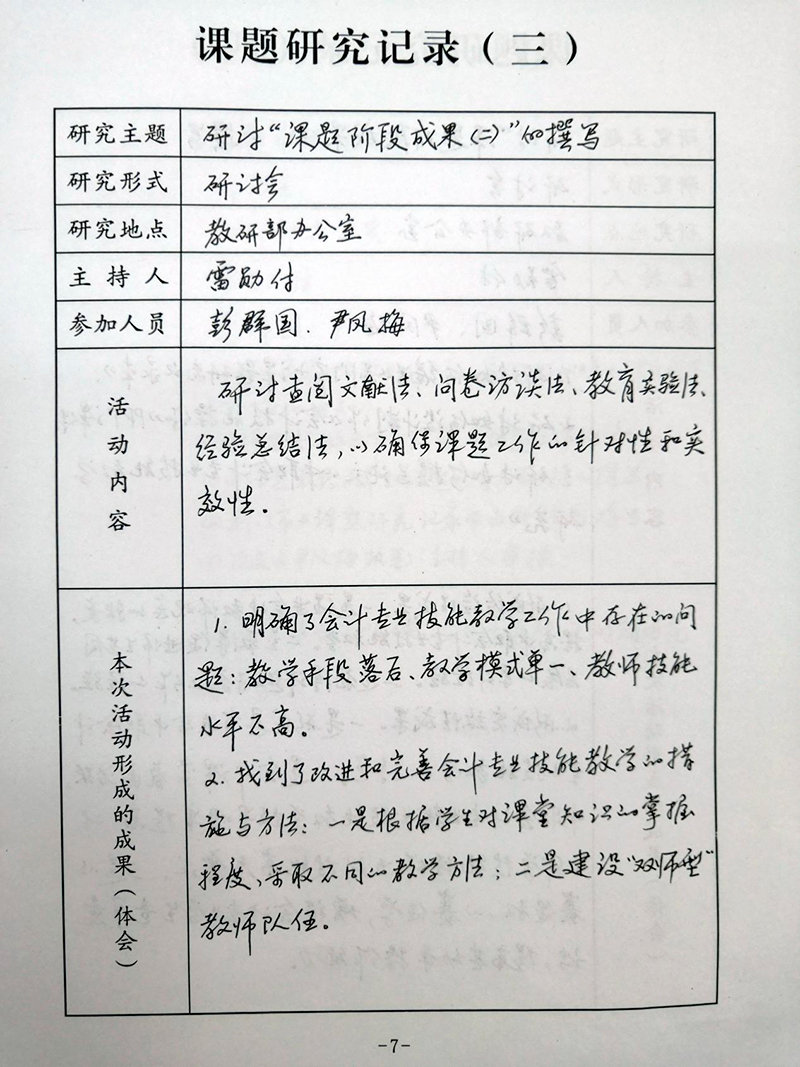 课题研究记录（三）
研究主题 研讨“课题阶段成果(二)”的撰写
研究形式 研讨会
研究地点 教研部办公室
主持人 雷勋付
参加人员 彭群国、尹凤梅
活动内容
研讨查阅文献法、问卷访谈法、教育实验法、
经验总结法，以确保课题工作的针对性和实
效性。
本次活动形成的成果（体会）
1. 明确了会计专业技能教学工作中存在的问
题：教学手段落后、教学模式单一、教师技能
水平不高。
2. 找到了改进和完善会计专业技能教学的措
施与方法：一是根据学生对课堂知识的掌握
程度、采取不同的教学方法；二是建设“双师型”
教师队伍。
-7-